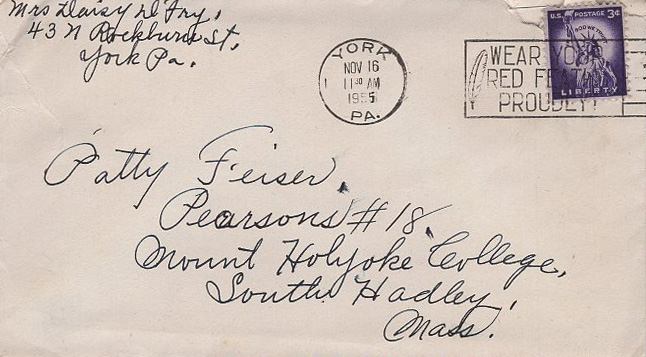 Mrs Daisy D Fry,
43 N Rockburn St,
York Pa.
YORK
NOV 16
11 30 AM
1955
PA.
WEAR YOUR
RED FEATHER
PROUDLY!
U.S. POSTAGE 3¢
IN GOD WE TRUST
LIBERTY
Patty Feiser,
Pearsons #18,
Mount Holyoke College,
South Hadley,
Mass.